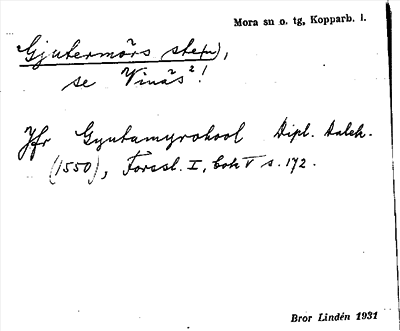 Mora sn o. tg, Kopparb. l.
Gjutermòrs sten),
se Vinäs²!
Jfr Gyutamyrohool Dipl. Dalek.
(1550), Forssl. I, bok V s. 172.
Bror Lindén 1931